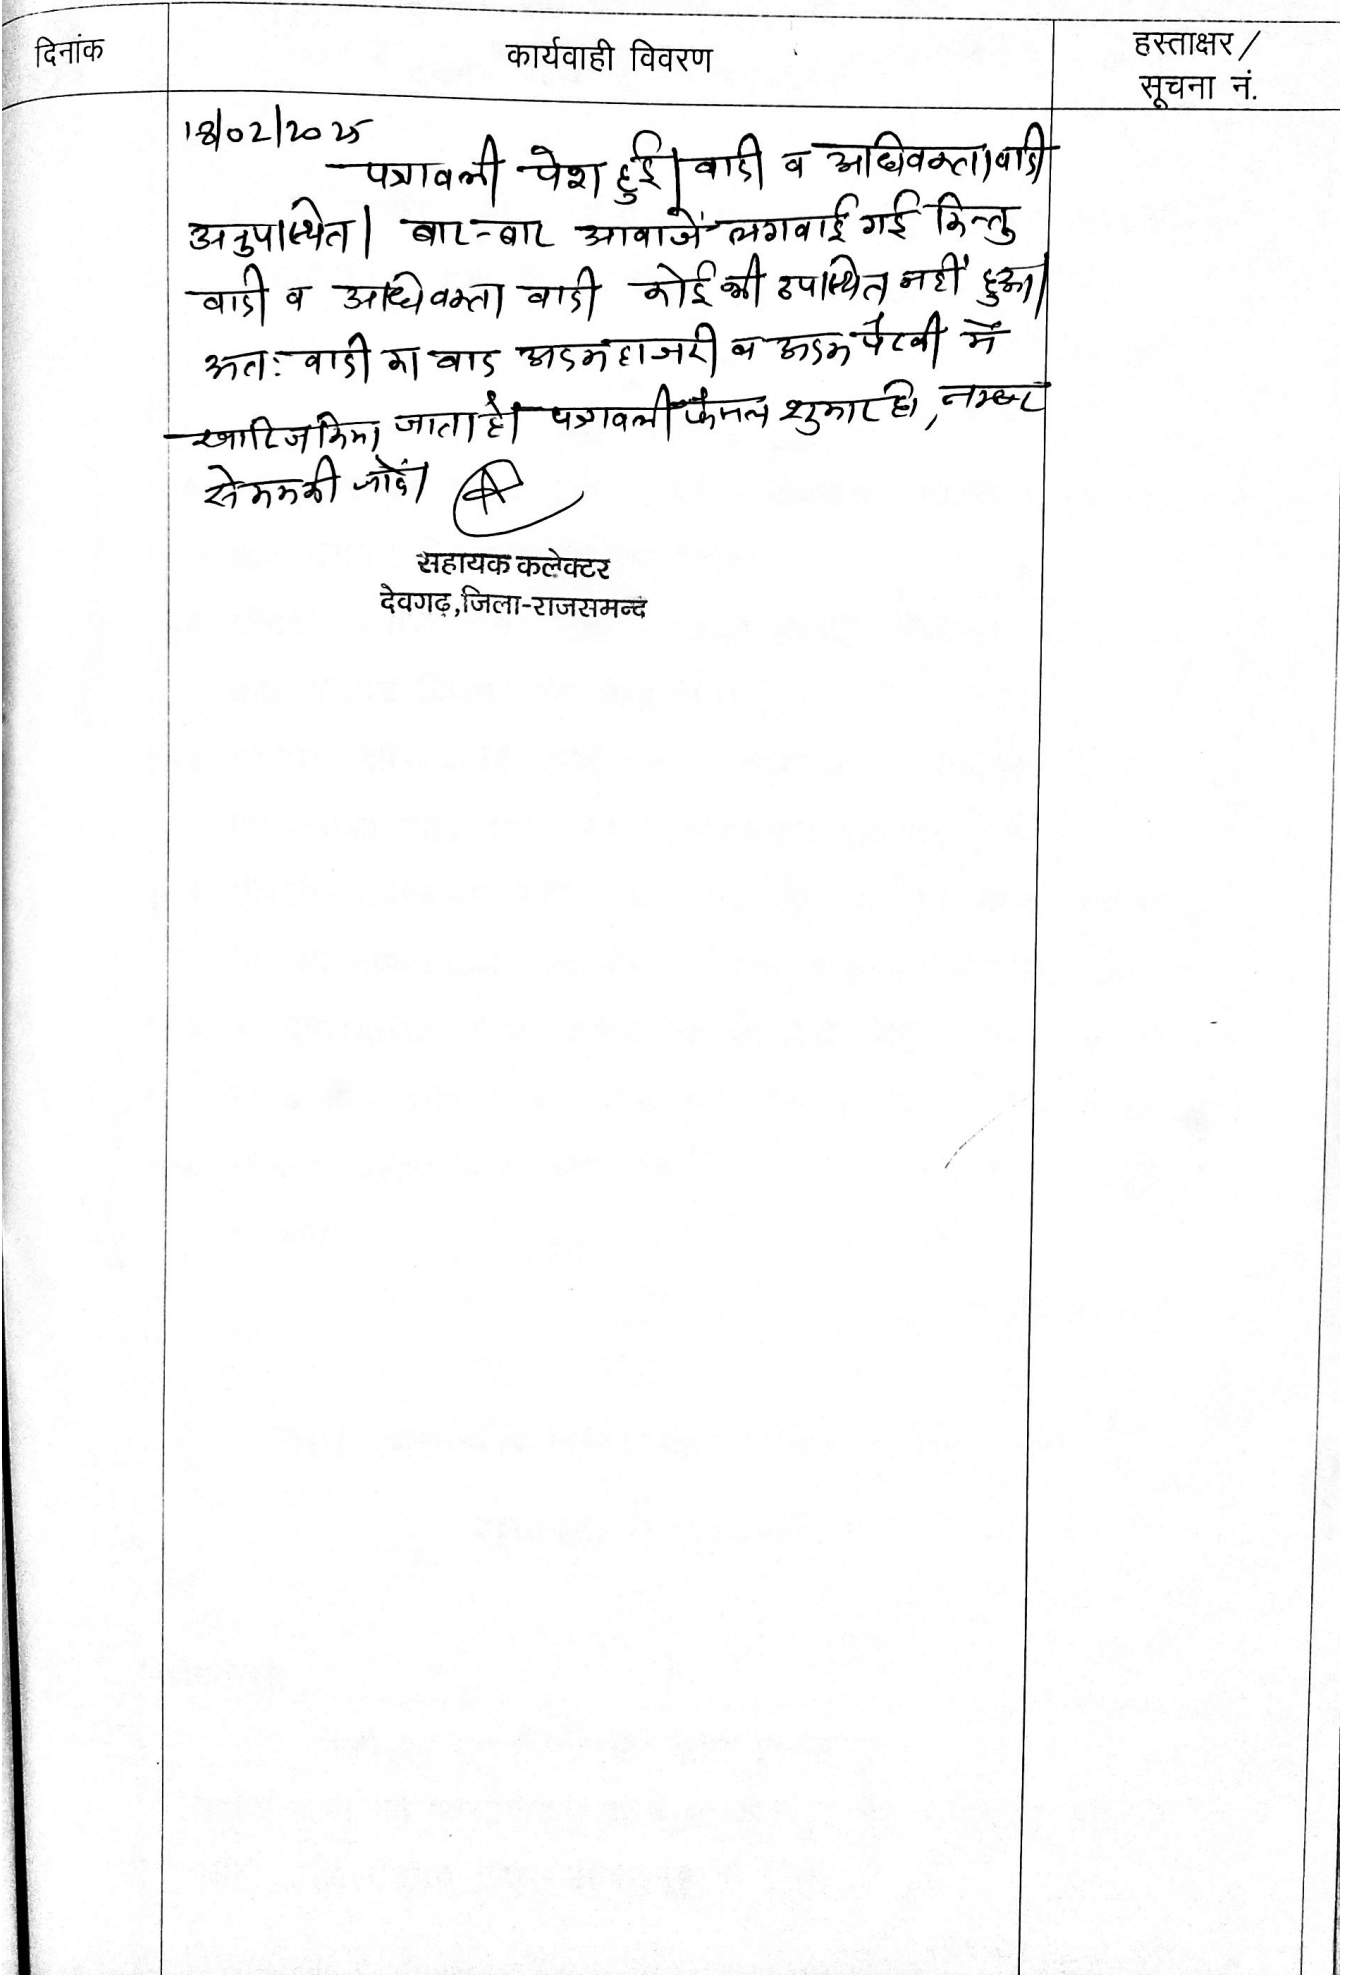 दिनांक
कार्यवाही विवरण
हस्ताक्षर /
सूचना नं.
18/02/2025
पत्रावली पेश हुई। वादी व अधिवक्ता वादी
अनुपस्थित। बार-बार आवाजें लगवाई गई किन्तु
वादी व अधिवक्ता वादी कोई भी उपस्थित नहीं हुआ।
अतः वादी का वाद अदम हाजरी व अदम पैरवी में
खारिज किया जाता है। पत्रावली फैसल शुमार हो, नम्बर
से कम की जावें।
सहायक कलेक्टर
देवगढ़,जिला-राजसमन्द